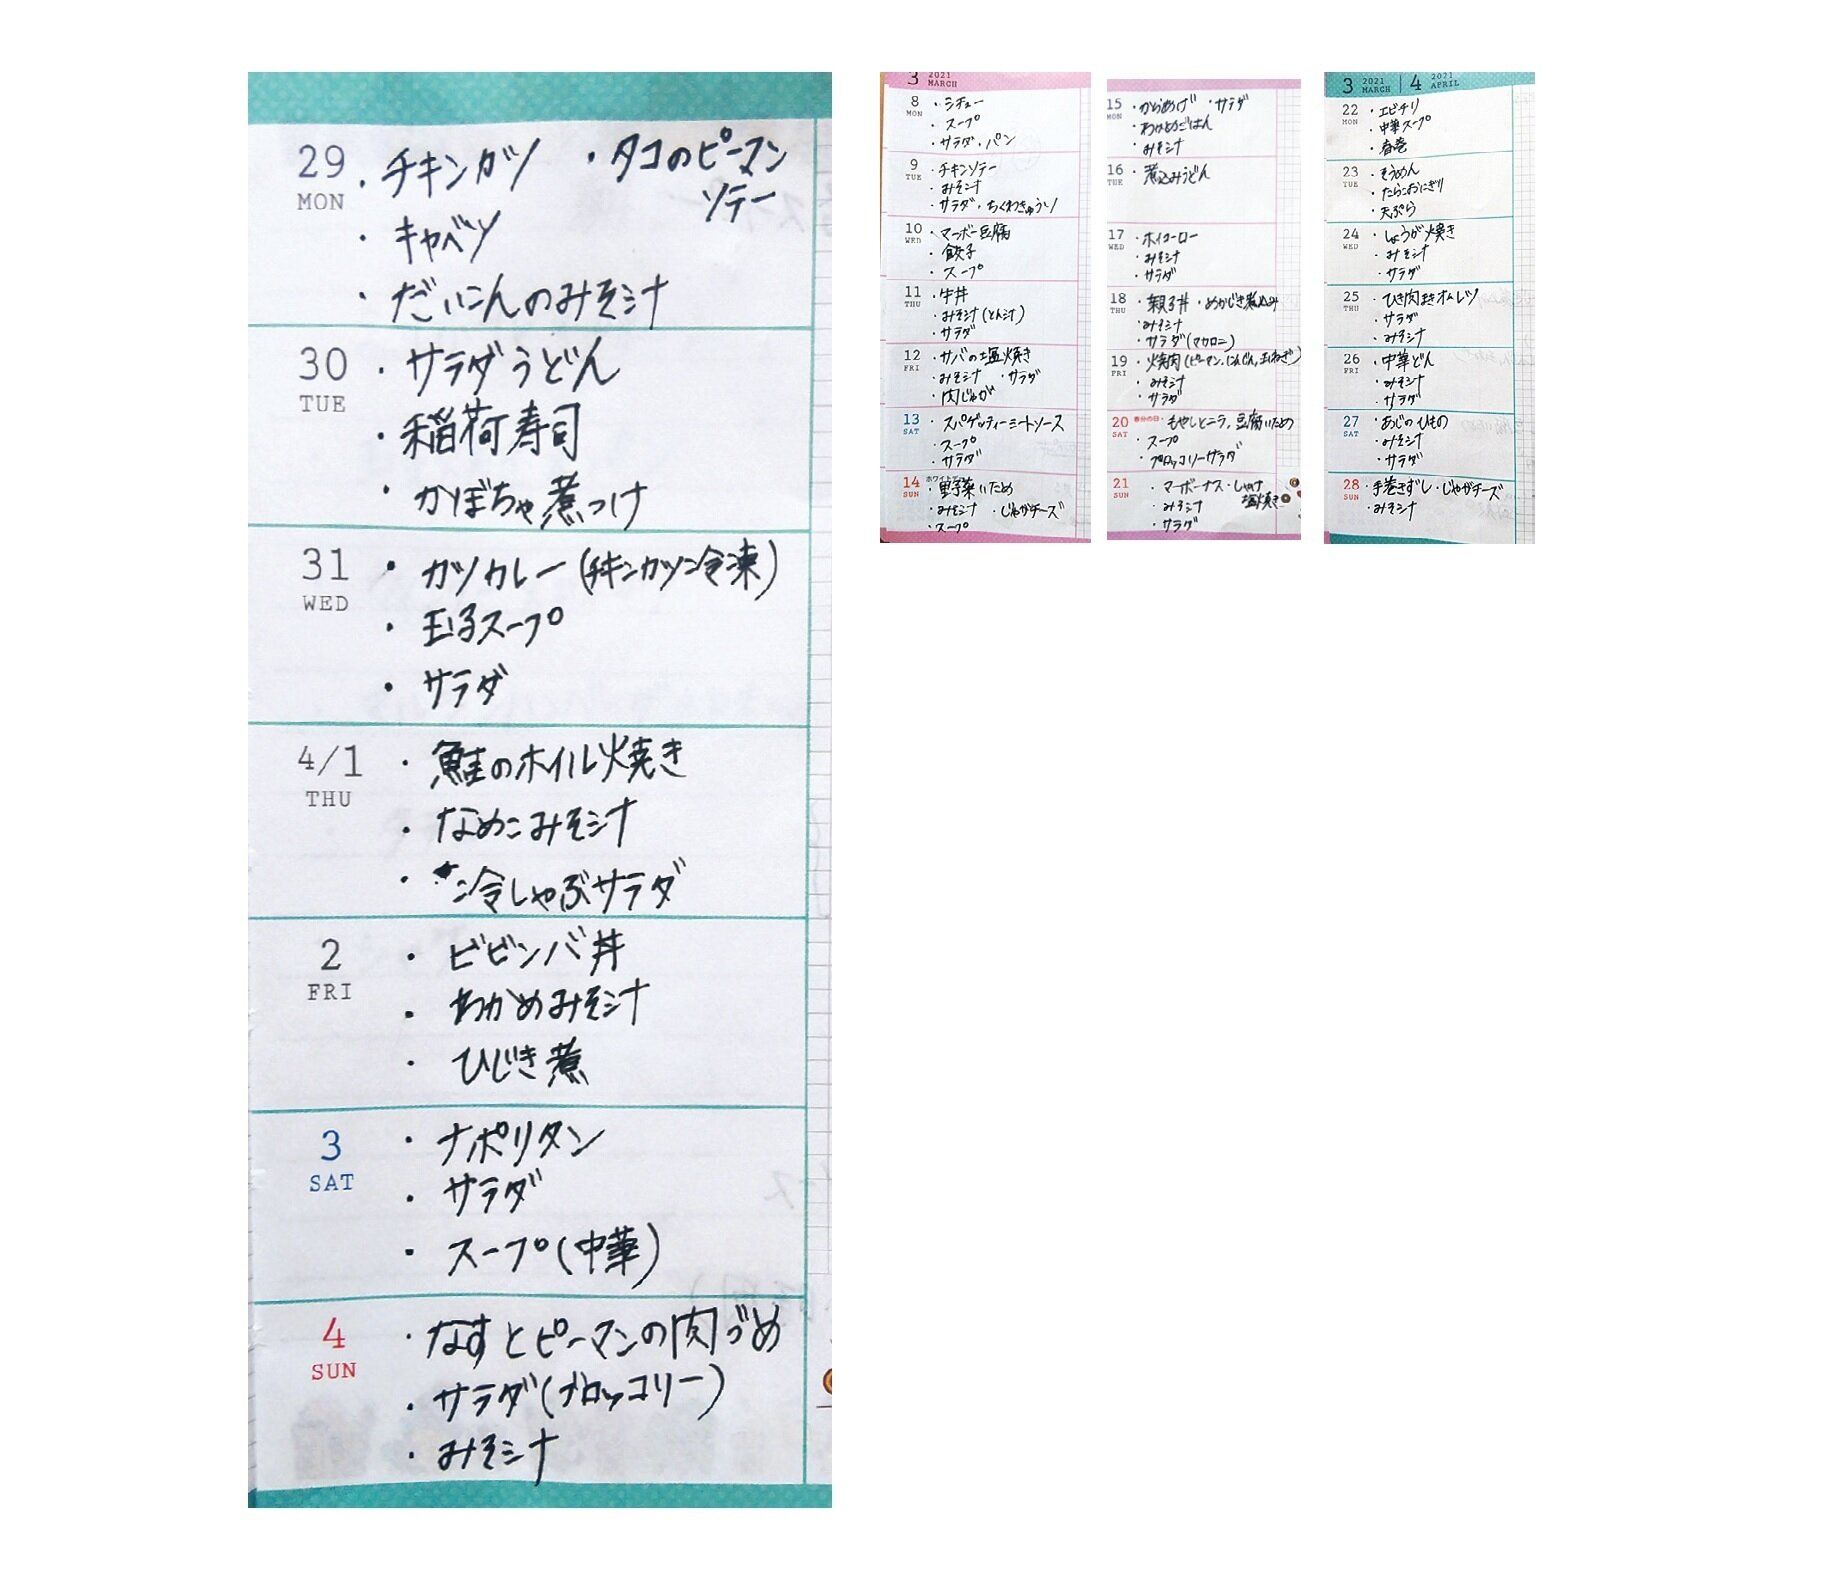 29 ・チキンカツ ・タコのピーマン
MON ソテー
・キャベツ
・だいこんのみそ汁
30 ・サラダうどん
TUE ・稲荷寿司
・かぼちゃ煮つけ
31 ・カツカレー(チキンカツ冷凍)
WED ・玉子スープ
・サラダ
4/1 ・鮭のホイル焼き
THU ・なめこみそ汁
・冷しゃぶサラダ
2 ・ビビンバ丼
FRI ・わかめみそ汁
・ひじき煮
3 ・ナポリタン
SAT ・サラダ
・スープ(中華)
4 ・なすとピーマンの肉づめ
SUN ・サラダ(ブロッコリー)
・みそ汁
3 2021 MARCH
8 ・シチュー
MON ・スープ
・サラダ・パン
9 ・チキンソテー
TUE ・みそ汁
・サラダ・ちくわきゅうり
10 ・マーボー豆腐
WED ・餃子
・スープ
11 ・牛丼
THU ・みそ汁(とん汁)
・サラダ
12 ・サバの塩焼き
FRI ・みそ汁 ・サラダ
・肉じゃが
13 ・スパゲッティーミートソース
SAT ・スープ
・サラダ
14 ホワイト
SUN ・野菜いため
・みそ汁 ・じゃがチーズ
・スープ
15 ・からあげ ・サラダ
MON ・わかめごはん
・みそ汁
16 ・煮込みうどん
TUE
17 ・ホイコーロー
WED ・みそ汁
・サラダ
18 ・親子丼 ・めかじき煮込み
THU ・みそ汁
・サラダ(マカロニ)
19 ・焼肉(ピーマン,にんじん,玉ねぎ)
FRI ・みそ汁
・サラダ
20 春分の日 ・もやしとニラ,豆腐いため
SAT ・スープ
・ブロッコリーサラダ
21 ・マーボーナス・しゃけ
SUN ・みそ汁 塩焼き
・サラダ
3 2021 MARCH 4 2021 APRIL
22 ・エビチリ
MON ・中華スープ
・春巻
23 ・そうめん
TUE ・たらこおにぎり
・天ぷら
24 ・しょうが焼き
WED ・みそ汁
・サラダ
25 ・ひき肉巻きオムレツ
THU ・サラダ
・みそ汁
26 ・中華どん
FRI ・みそ汁
・サラダ
27 ・あじのひもの
SAT ・みそ汁
・サラダ
28 ・手巻きずし・じゃがチーズ
SUN ・みそ汁